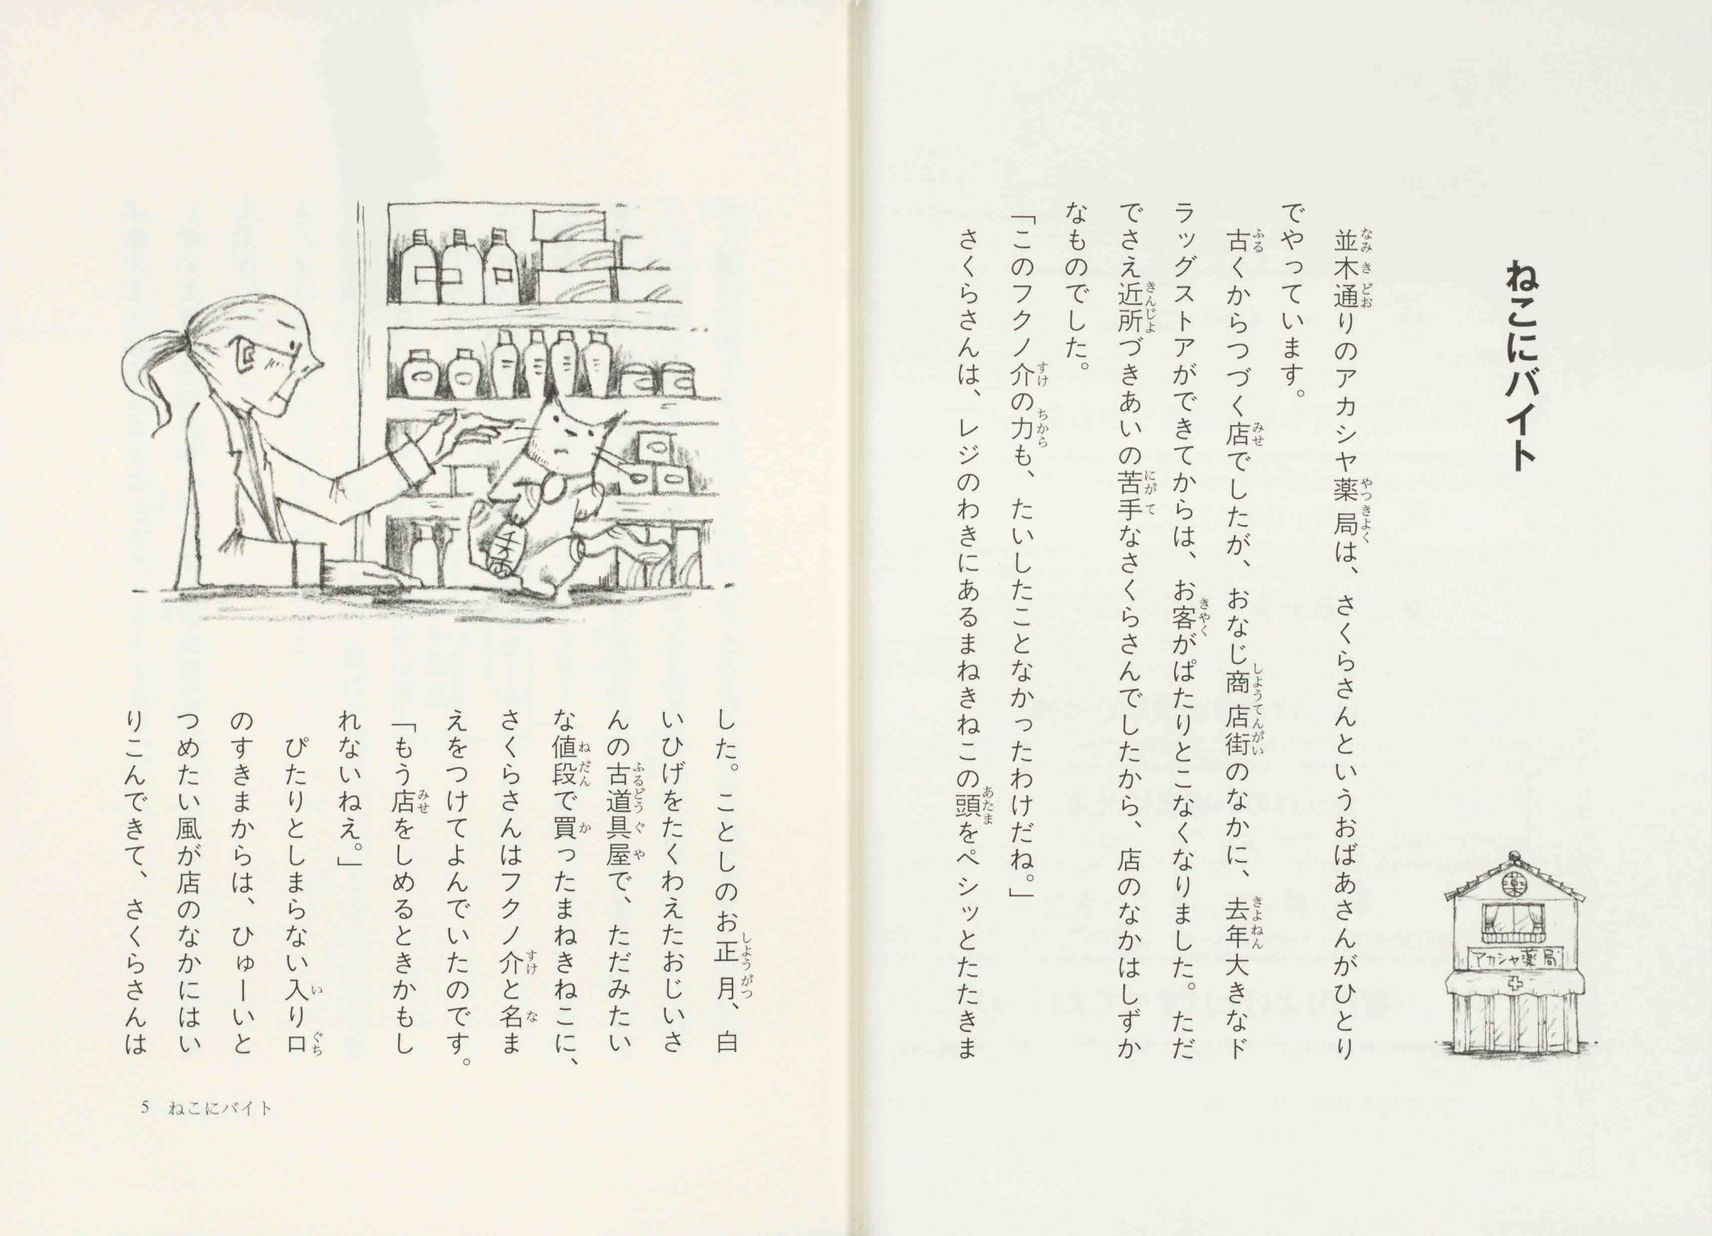 ねこにバイト
並木通りのアカシヤ薬局は、さくらさんというおばあさんがひとり
でやっています。
古くからつづく店でしたが、おなじ商店街のなかに、去年大きなド
ラッグストアができてからは、お客がぱたりとこなくなりました。ただ
でさえ近所づきあいの苦手なさくらさんでしたから、店のなかはしずか
なものでした。
「このフクノ介の力も、たいしたことなかったわけだね。」
さくらさんは、レジのわきにあるまねきねこの頭をペシッとたたきま
薬
アカシヤ薬局
千両
した。ことしのお正月、白
いひげをたくわえたおじいさ
んの古道具屋で、ただみたい
な値段で買ったまねきねこに、
さくらさんはフクノ介と名ま
えをつけてよんでいたのです。
「もう店をしめるときかもし
れないねえ。」
ぴたりとしまらない入り口
のすきまからは、ひゅーいと
つめたい風が店のなかにはい
りこんできて、さくらさんは
5 ねこにバイト